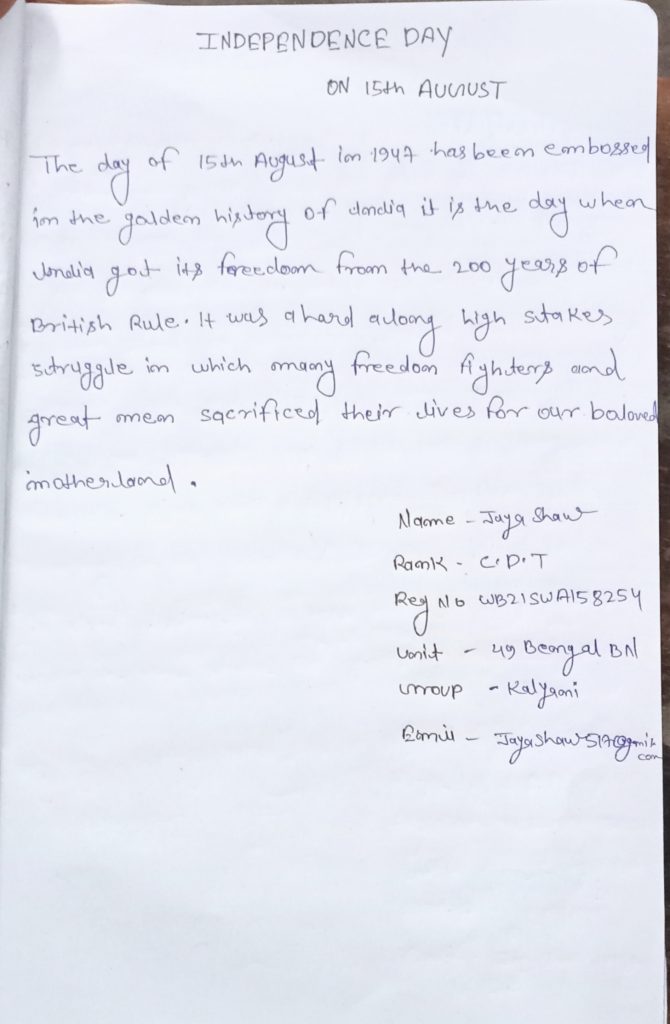 INDEPENDENCE DAY
ON 15th AUGUST
The day of 15th August in 1947 has been embossed
in the golden history of India it is the day when
India got its freedom from the 200 years of
British Rule. It was a hard along high stakes
struggle in which many freedom fighters and
great men sacrificed their lives for our beloved
motherland.
Name - Jaya Shaw
Rank - C.D.T
Reg No WB21SWA158254
Unit - 49 Bengal BN
Group - Kalyani
Email -